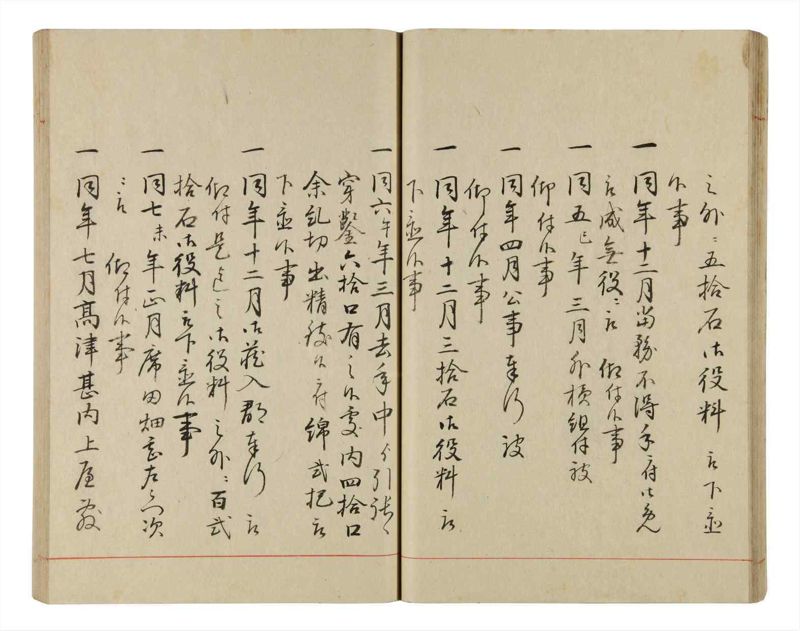 之外ニ五拾石御役料被下置
候事
一同年十二月当務不得手ニ付御免
被成無役ニ被 仰付候事
一同五巳年三月外横組付被
仰付候事
一同年四月公事奉行被
仰付候事
一同年十二月三拾石御役料被
下置候事
一同六午年三月去年中ゟ引張
穿鑿六拾口有之候処内四拾口
余乱切出精致候ニ付綿弐把被
下置候事
一同年十二月御蔵入郡奉行被
仰付是迄之御役料之外ニ百弐
拾石御役料被下置候事
一同七未年正月席 左之次
ニ被 仰付候事
一同年七月高津甚内上座